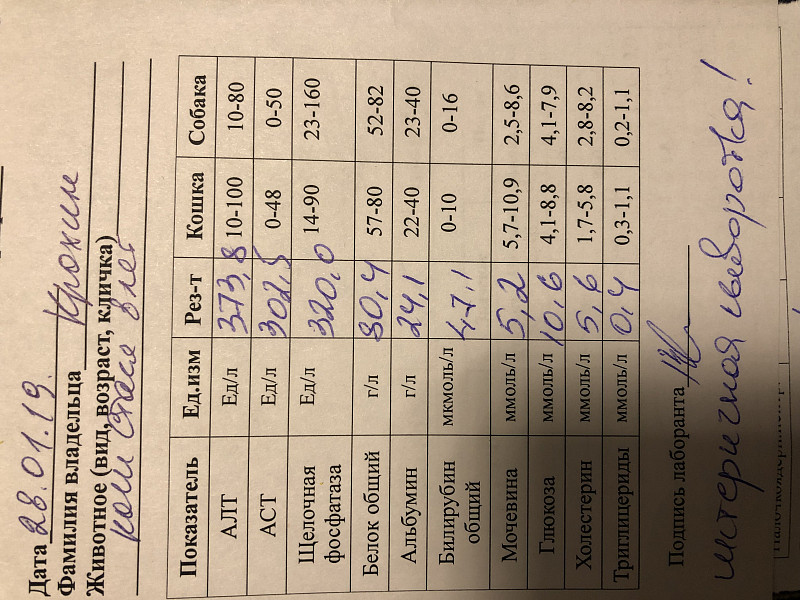 Дата 28.01.19.
Фамилия владельца Крохин
Животное (вид, возраст, кличка)
кот Стася 8 лет
Показатель Ед.изм Рез-т Кошка Собака
АЛТ Ед/л 373,8 10-100 10-80
АСТ Ед/л 302,5 0-48 0-50
Щелочная фосфатаза Ед/л 320,0 14-90 23-160
Белок общий г/л 80,4 57-80 52-82
Альбумин г/л 24,1 22-40 23-40
Билирубин общий мкмоль/л 47,1 0-10 0-16
Мочевина ммоль/л 5,2 5,7-10,9 2,5-8,6
Глюкоза ммоль/л 10,6 4,1-8,8 4,1-7,9
Холестерин ммоль/л 5,6 1,7-5,8 2,8-8,2
Триглицериды ммоль/л 0,4 0,3-1,1 0,2-1,1
Подпись лаборанта
иктеричная сыворотка!